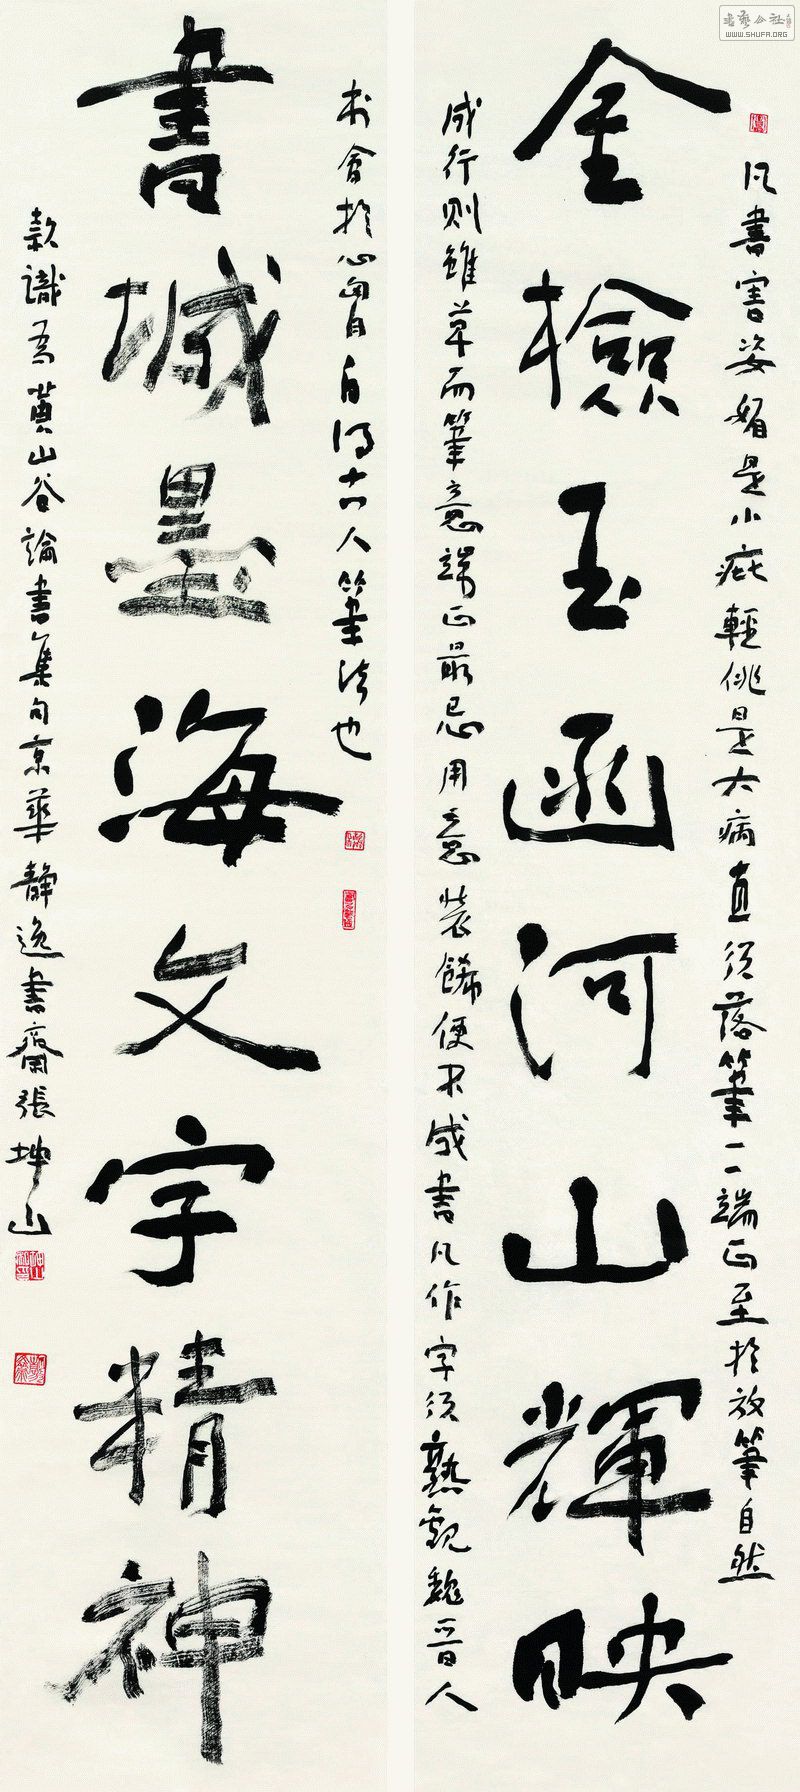 書藝公社
WWW.SHUFA.ORG
凡書害姿媚是小疵輕佻是大病直須落筆一一端正至於放筆自然
金檢玉函河山輝映
成行則雖草而筆意端正最忌用意裝飾便不成書凡作字須熟觀魏晉人
書會於心自得古人筆法也
書城墨海文字精神
款識為黃山谷論書集句京華靜逸書齋張坤山